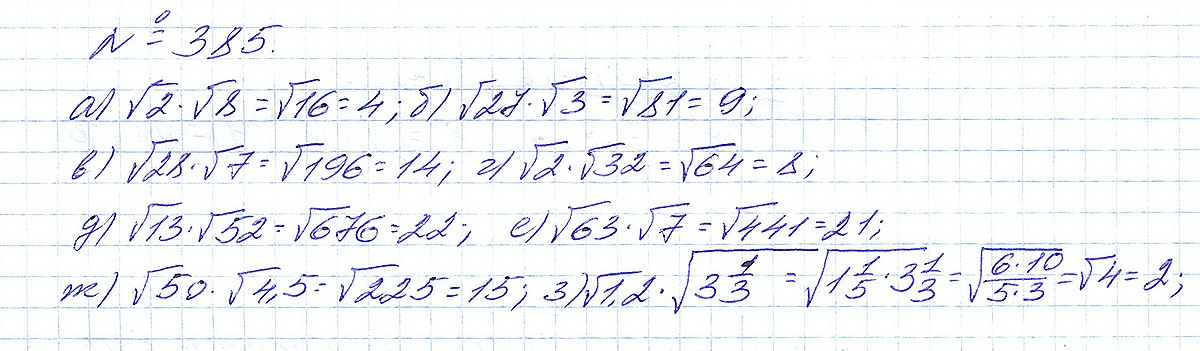 № 385.
а) √2 · √8 = √16 = 4; б) √27 · √3 = √81 = 9;
в) √28 · √7 = √196 = 14; г) √2 · √32 = √64 = 8;
д) √13 · √52 = √676 = 22; е) √63 · √7 = √441 = 21;
ж) √50 · √4,5 = √225 = 15; з) √1,2 · √(3 1/3) = √(1 1/5 · 3 1/3) = √((6 · 10)/(5 · 3)) = √4 = 2;